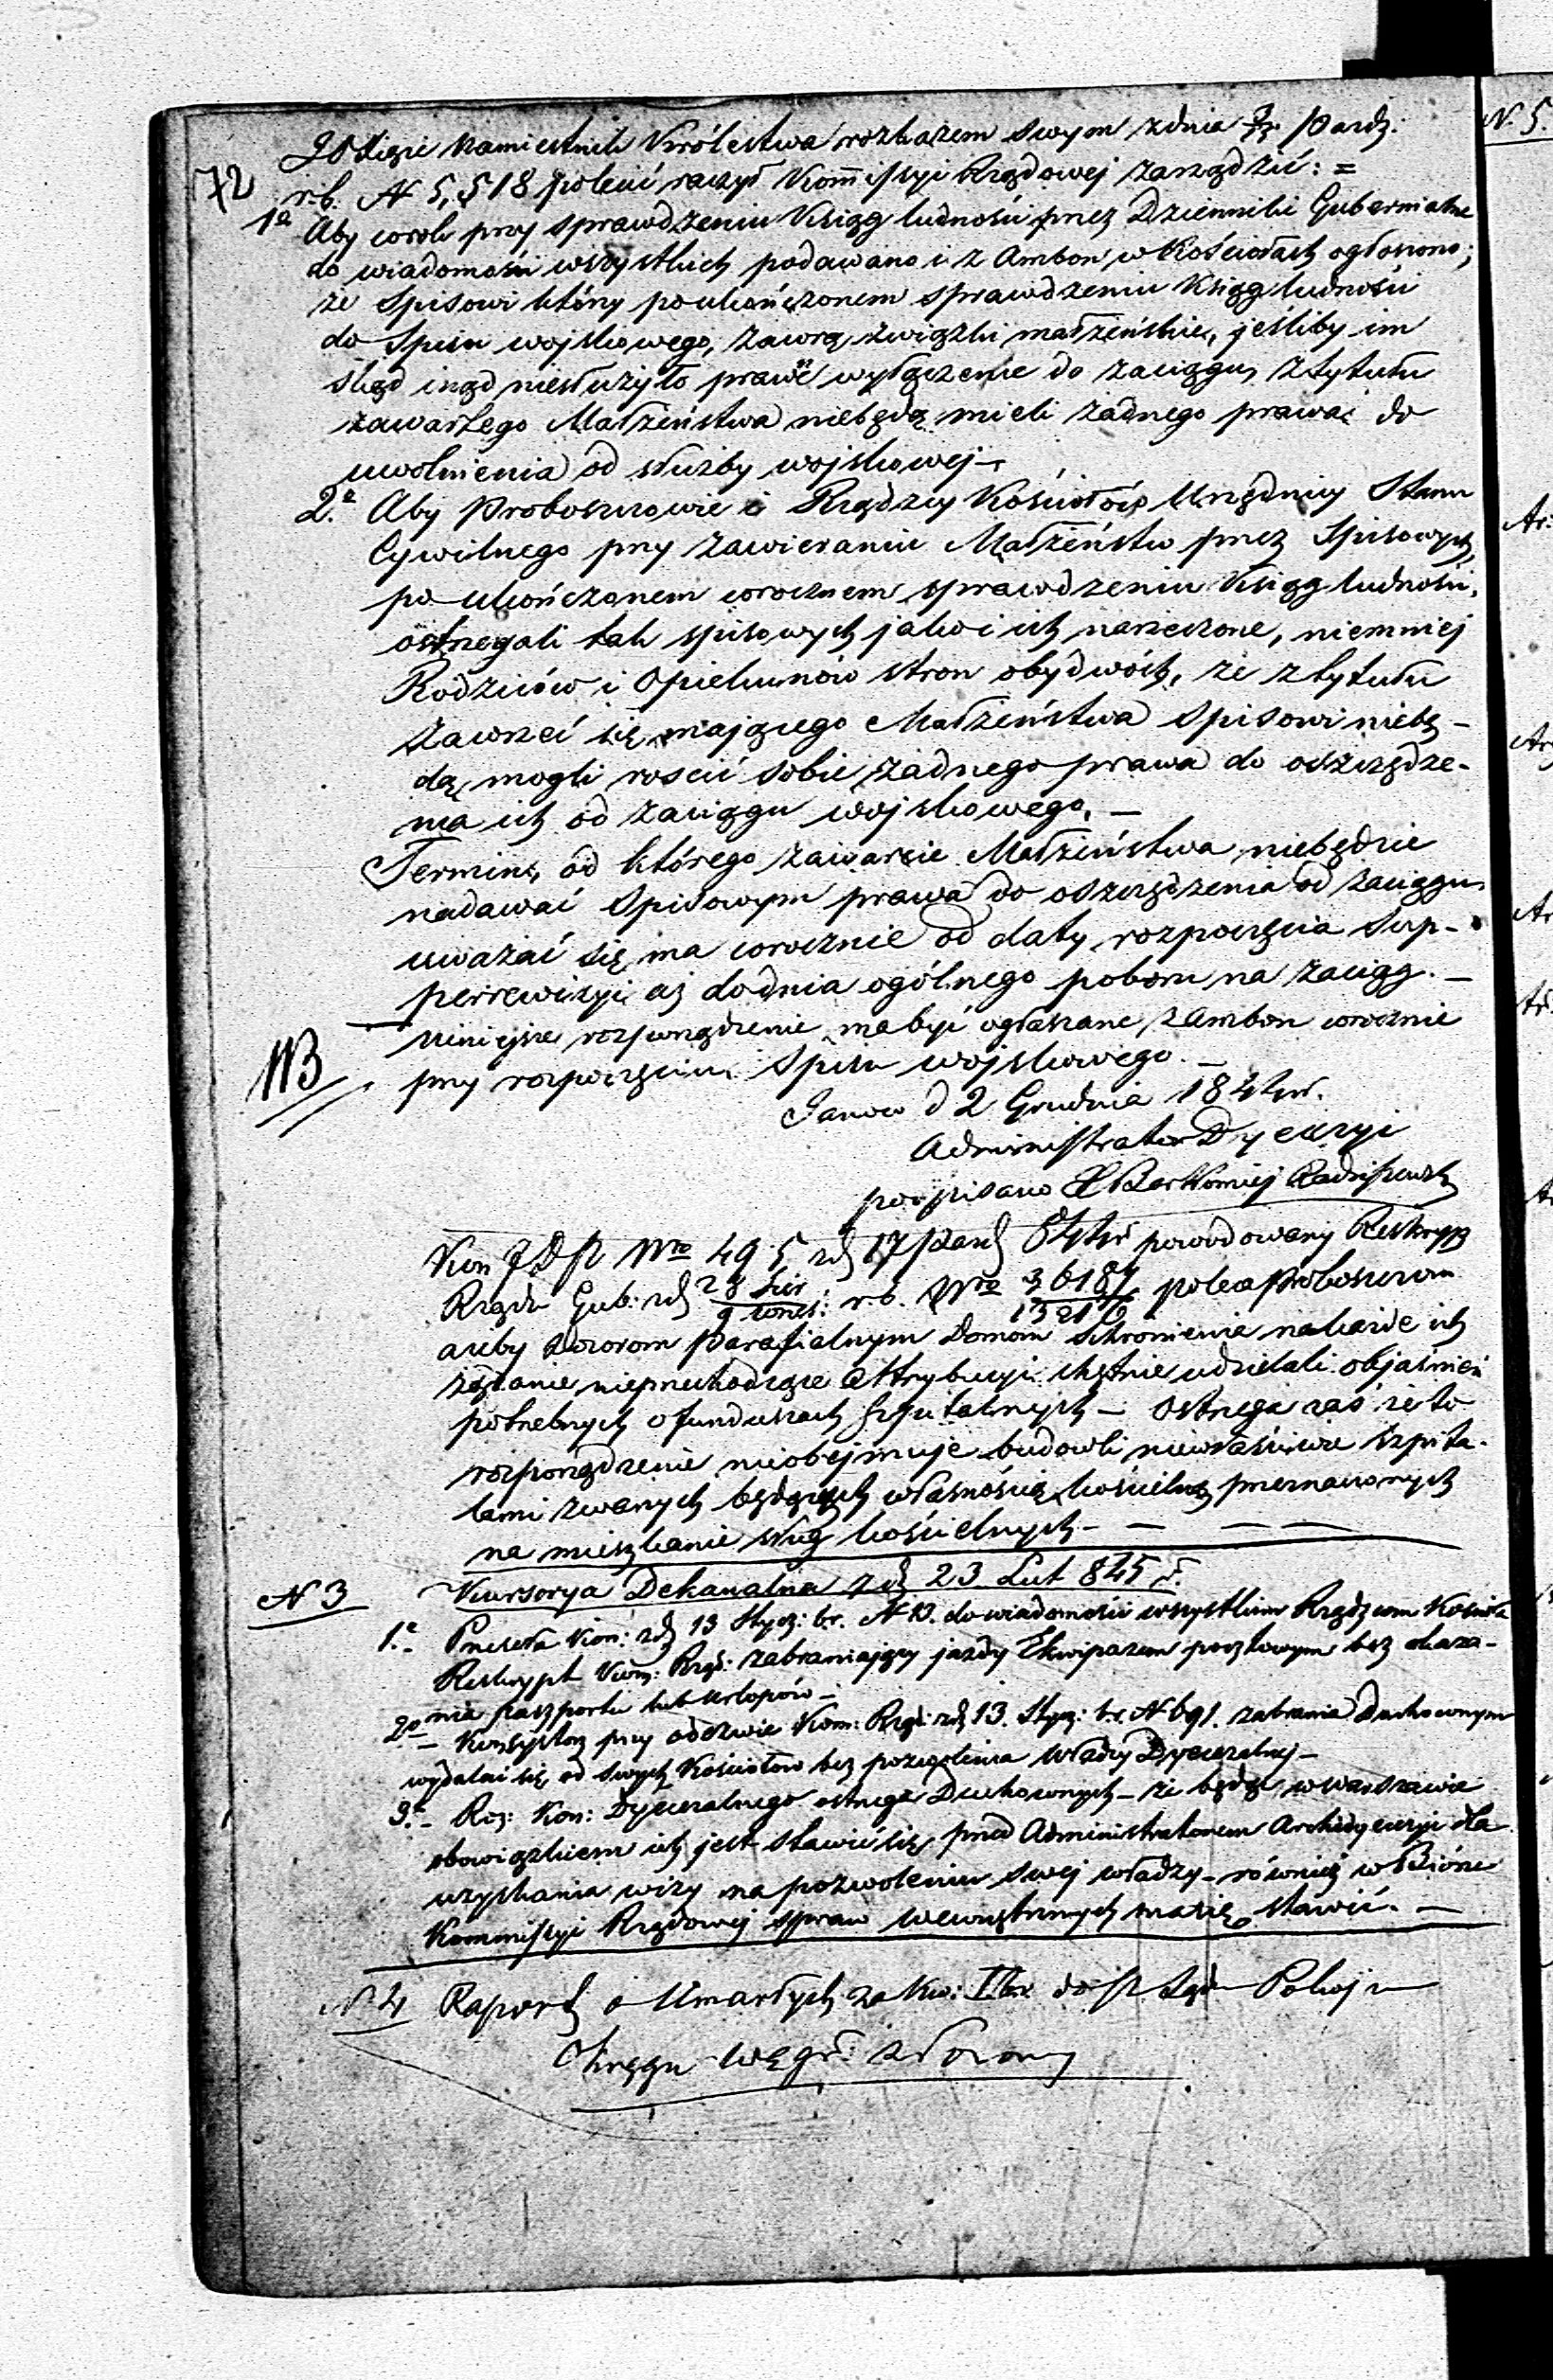 JO Xiąże Namiestnik Królestwa rozkazem swym z dnia Paźdz:
72 r. b. N 5,518 polecić raczył Kommissyi Rządowej zarządzić: =
1e Aby corok przy sprawdzeniu Ksiąg ludności przez Dzienniki Gubernialne
do wiadomości wszystkich podawano i z Ambon w Kościołach ogłoszono;
że Spisowi którzy po ukończonem sprawdzeniu Ksiąg ludności
do Spisu wojskowego, zawrą związki małżeńskie, jeśliby im
skąd inąd niesłużyło prawo wyłączenie do zaciągu, z tytułu
zawartego Małżeństwa niebędą mieli żadnego prawa do
uwolnienia od służby wojskowej –
2.e Aby Proboszczowie i Rządzcy Kościołów Urzędnicy Stanu
Cywilnego przy zawieraniu Małżeństw przez Spisowych,
po ukończonem corocznem sprawdzeniu Ksiąg ludności,
ostrzegali tak spisowych jako i ich narzeczone, niemniej
Rodziców i Opiekunów stron obydwóch, że z tytułu
zawrzeć się mającego Małżeństwa Spisowi niebę-
dą mogli rościć sobie żadnego prawa do oszczędze-
nia ich od zaciągu wojskowego. –
Termin, od którego zawarcie Małżeństwa niebędzie
nadawać Spisowym prawa do oszczędzenia od zaciągu
uważać się ma corocznie od daty rozpoczęcia Sup-
perrewizyi aż do dnia ogólnego poboru na zaciąg. –
niniejsze rozporządzenie ma być ogłaszane z ambon corocznie
NB przy rozpoczęciu Spisu wojskowego. –
Janow d 2 Grudnia 184 r.
Administrator Dyecezyi
podpisano X Bartłomiej Radziszewski
Kon J D P Nro 495 z d 17 Paźd powodowany Reskryp
Rządu Gub: z d 28 Sier / 9 Wrześ: r. b. Nro polca Proboszczom
ażeby Dozorom Parafialnym Domom Schronienia na każde ich
żądanie nieprzechodzące Attrybucyi chętnie udzielali objaśnień
potrzebnych o funduszach Szpitalnych – Ostrzega zaś że to
rozporządzenie nieobejmuje budowli niewłaściwie szpita-
lami zwanych będących własnością kościelną przeznaczonych
na mieszkanie sług kościelnych – – – –
N 3 Kursorya Dekanalna z d 23 Lut 845 r.
1.e Przesyła Kon: z d 13 Stycz: b.r. N 13. do wiadomości wszystkim Rządzcom Kościoła
Reskrypt Kom: Rząd: zabraniający jazdy Ekwipażem pocztowym bez okaza-
nia paszportu lub urlopów –
2o – Konsystorz przy odezwie Kom: Rząd: z d 13. Stycz: b.r. N 691. zabrania Duchownym
wydalać się od swych Kościołów bez pozwolenia Władzy Dyecezalnej –
3.e – Roz: Kon: Dyecezalnego ostrzega Duchownych – że będąc w Warszawie
obowiązkiem ich jest stawić się przed Administratorem Archidyecezyi dla
uzyskania wizy na pozwoleniu swej władzy – również w Biórze
Kommissyi Rządowej spraw wewnętrznych ma się stawić. –
N 4 Raport o Umarłych za Kw: I b.r. do Sądu Pokoju
Okręgu Węgr: złożony
N. 5.